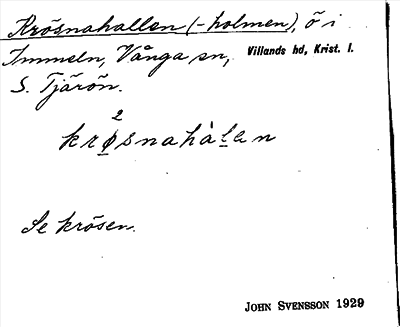 Krösnahallen (-holmen), ö i
Immeln, Vånga sn, Villands hd, Krist. l.
S. Tjärön.
2
krøsnahàlen
Se krösen.
JOHN SVENSSON 1929